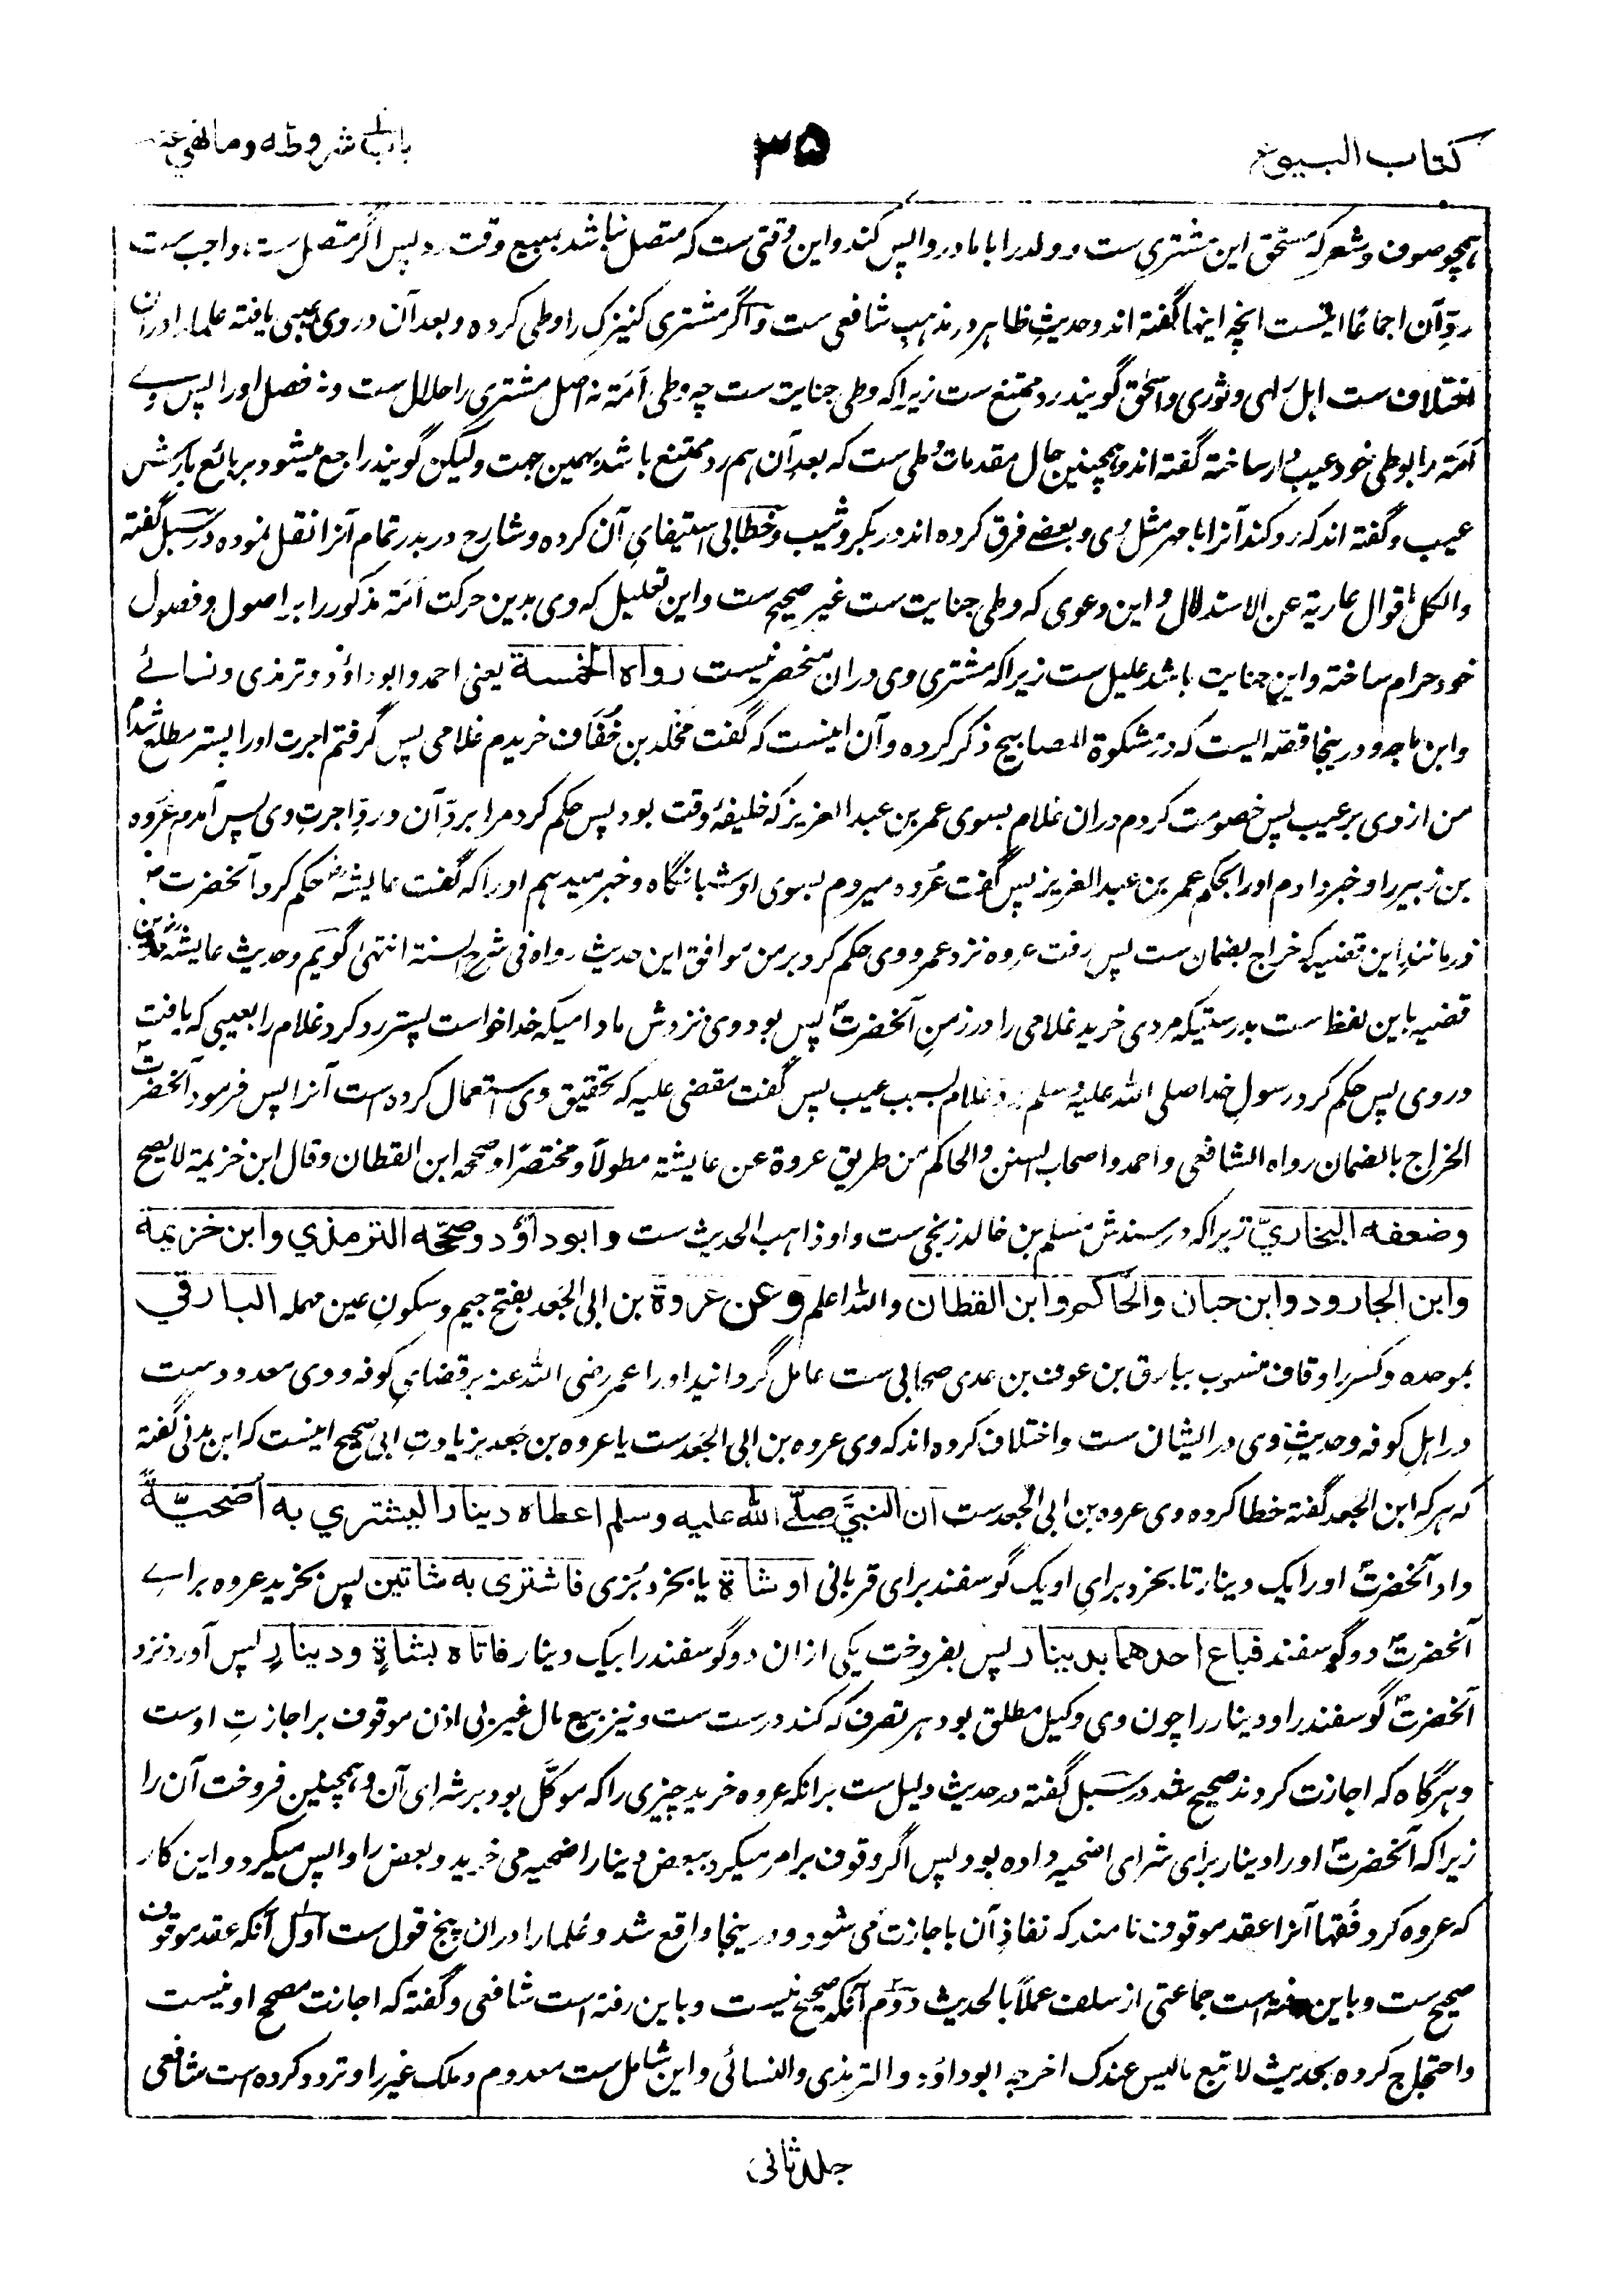 کتاب البیوع
۳۵
باب شروطه وما نهي عنه
ہمچو صوف و شعر کہ مستحق این مشتری ست و ولد را با مادر واپس کند و این وقتی ست کہ متصل نباشد ببیع وقت رد پس اگر متصل ست واجب ست
ردِّ آن اجماعًا اینست انچہ اینہا گفتہ اند و حدیثِ ظاہر در مذہبِ شافعی ست و اگر مشتری کنیزک را وطی کردہ و بعد آن در وی عیبی یافتہ علما را دران
اختلاف ست اہل رای و ثوری و اسحٰق گویند رد ممتنع ست زیرا کہ وطی جنایت ست چہ وطی اَمَۃ نہ اصل مشتری را حلال ست و نہ فصل او را پس وے
اَمَۃ را بوطی خود عیب دار ساختہ گفتہ اند و ہمچنین حال مقدمات وطی ست کہ بعد آن ہم رد ممتنع باشد بہمین جہت و لیکن گویند راجع میشود بر بائع بارش
عیب و گفتہ اند کہ رد کند آنرا با مہر مثل وی و بعضے فرق کردہ اند در بکر و ثیب و خطابی استیفایِ آن کردہ و شارح در بدر تمام آنرا نقل نمودہ در سبل گفتہ
والکل اقوال عاریة عن الاستدلال و این دعوی کہ وطی جنایت ست غیر صحیح ست و این تعلیل کہ وی بدین حرکت اَمَۃ مذکور را بر اصول و فصول
خود حرام ساختہ و این جنایت باشد علیل ست زیرا کہ مشتری وی دران منحصر نیست رواه الخمسة یعنی احمد و ابو داؤد و ترمذی و نسائے
و ابن ماجہ و در ینجا قصہ ایست کہ در مشکوة المصابیح ذکر کردہ و آن اینست کہ گفت مخلد بن خُفَاف خریدم غلامی پس گرفتم اجرت او را پستر مطلع شدم
من از وی بر عیب پس خصومت کردم دران غلام بسوی عمر بن عبد العزیز کہ خلیفۂ وقت بود پس حکم کرد مرا بردِّ آن و ردِّ اجرتِ وی پس آمدم عروہ
بن زبیر را و خبر دادم او را بحکم عمر بن عبد العزیز پس گفت عُروہ میروم بسوی او شبانگاہ و خبر میدہم او را کہ گفت عایشہ رض حکم کرد آنحضرت ص
در مانندِ این قضیہ کہ خراج بضمان ست پس رفت عروہ نزد عمر و وی حکم کرد بر من موافق این حدیث رواہ فی شرح السنة انتہیٰ گویم و حدیث عایشہ درین
قضیہ باین لفظ ست بدرستیکہ مردی خرید غلامی را در زمنِ آنحضرتؐ پس بود وی نزدش مادامیکہ خدا خواست پستر رد کرد غلام را بعیبی کہ یافت
در وی پس حکم کرد رسولِ خدا صلی اللہ علیہ وسلم بردِ غلام بسبب عیب پس گفت مقضی علیہ کہ تحقیق وی استعمال کردہ است آنرا پس فرمود آنحضرتؐ
الخراج بالضمان رواہ الشافعی و احمد و اصحاب السنن والحاکم من طریق عروة عن عایشة مطولاً و مختصرًا و صححہ ابن القطان وقال ابن خزیمة لا یصح
وضعفه البخاريّ زیرا کہ در سندش مسلم بن خالد زنجی ست و او ذاہب الحدیث ست وابو داؤد وصحّحه الترمذي وابن خزيمة
وابن الجارود وابن حبان والحاكم وابن القطان واللہ اعلم وعن عروة بن ابی الجَعد بفتح جیم و سکونِ عین مہملہ البارقي
بموحدہ و کسر را و قاف منسوب ببارق بن عوف بن عدی صحابی ست عامل گردانید او را عمر رضی اللہ عنہ بر قضایِ کوفہ و وی معدود ست
در اہلِ کوفہ و حدیثِ وی در ایشان ست و اختلاف کردہ اند کہ وی عروہ بن ابی الجَعد ست یا عروہ بن جَعد بزیادتِ ابی صحیح اینست کہ ابن مدنی گفتہ
کہ ہر کہ ابن الجعد گفتہ خطا کردہ وی عروہ بن ابی الجعد ست ان النبيَّ صلّے الله عليه وسلم اعطاه دينارا ليشتري به اضحيّةً
داد آنحضرتؐ او را یک دینار تا بخرد برایِ او یک گوسفند برای قربانی او شاة یا بخرد بُزی فاشترى به شاتين پس بخرید عروہ برائے
آنحضرتؐ دو گوسفند فباع احدهما بدينار پس بفروخت یکی ازان دو گوسفند را بیک دینار فاتاه بشاةٍ ودينارٍ پس آورد نزد
آنحضرتؐ گوسفند را و دینار را چون وی وکیل مطلق بود ہر تصرف کہ کند درست ست و نیز بیع مال غیر بی اذن موقوف بر اجازتِ اوست
و ہرگاہ کہ اجازت کردند صحیح شد در سبل گفتہ در حدیث دلیل ست برانکہ عروہ خرید چیزی را کہ موکّل بود بر شرای آن و ہمچنین فروخت آن را
زیرا کہ آنحضرتؐ او را دینار برای شرای اضحیہ دادہ بود پس اگر وقوف بر امر میکرد ببعض دینار اضحیہ می خرید و بعض را واپس میکرد و این کار
کہ عروہ کرد فُقہا آنرا عقد موقوف نامند کہ نفاذِ آن باجازت می شود و در ینجا واقع شد و عُلما را دران پنج قول ست اوّل آنکہ عقد موقوف
صحیح ست و باین رفتہ است جماعتی از سلف عملًا بالحدیث دوّم آنکہ صحیح نیست و باین رفتہ است شافعی و گفتہ کہ اجازت مصحح او نیست
و احتجاج کردہ بحدیث لا تبع ما لیس عندک اخرجہ ابو داؤد و الترمذی والنسائی و این شامل ست معدوم و ملک غیر را و تردد کردہ است شافعی
جلد ثانی